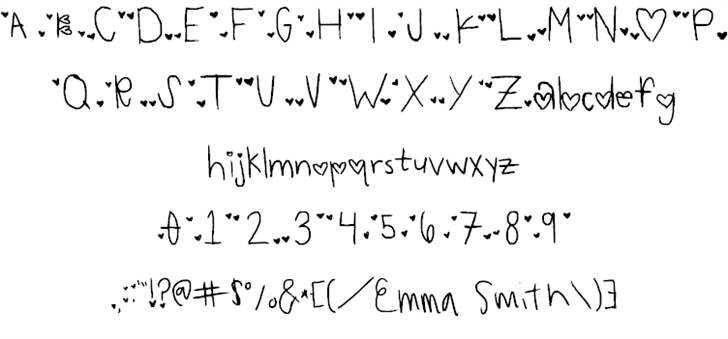 A B C D E F G H I J K L M N O P
Q R S T U V W X Y Z abcdefg
hijklmnopqrstuvwxyz
0 1 2 3 4 5 6 7 8 9
.,:;'"!?@#$%&*[(/Emma Smith\)]